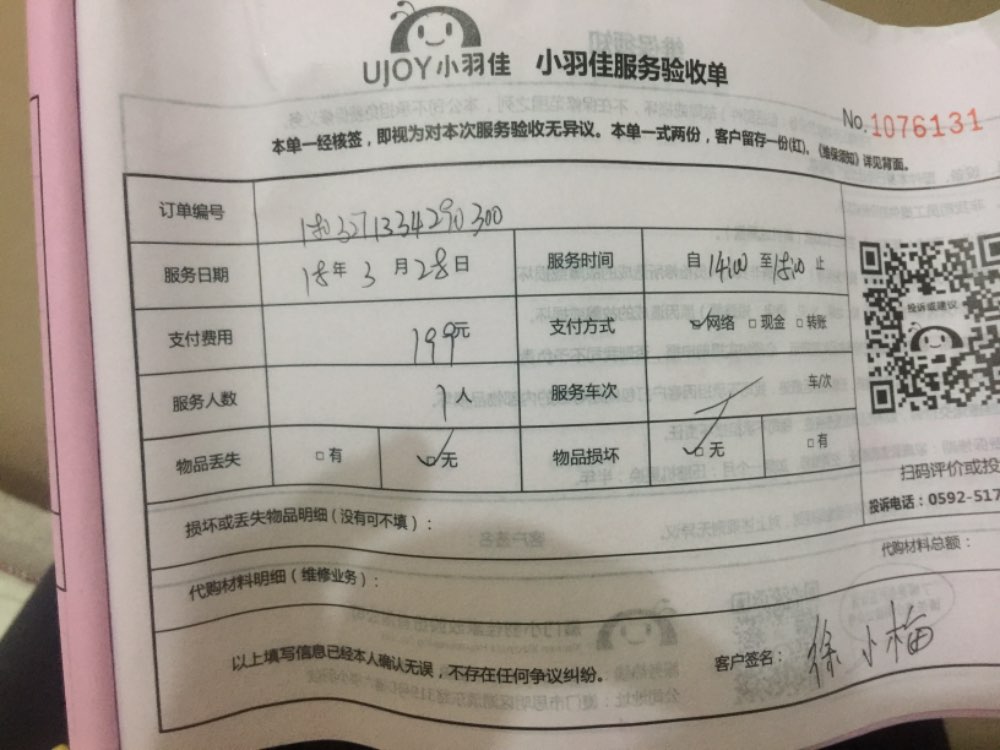 UJOY小羽佳 小羽佳服务验收单
No.1076131
本单一经核签，即视为对本次服务验收无异议。本单一式两份，客户留存一份(红)。《维保须知》详见背面。
订单编号 180327133429 0300
服务日期 18年3月28日 服务时间 自14:00至18:00止
支付费用 199元 支付方式 网络 现金 转账
服务人数 1人 服务车次 车/次
物品丢失 有 无 物品损坏 无 有
投诉或建议
扫码评价或投
投诉电话：0592-517
损坏或丢失物品明细（没有可不填）：
代购材料总额：
代购材料明细（维修业务）：
以上填写信息已经本人确认无误，不存在任何争议纠纷。
客户签名：徐小梅